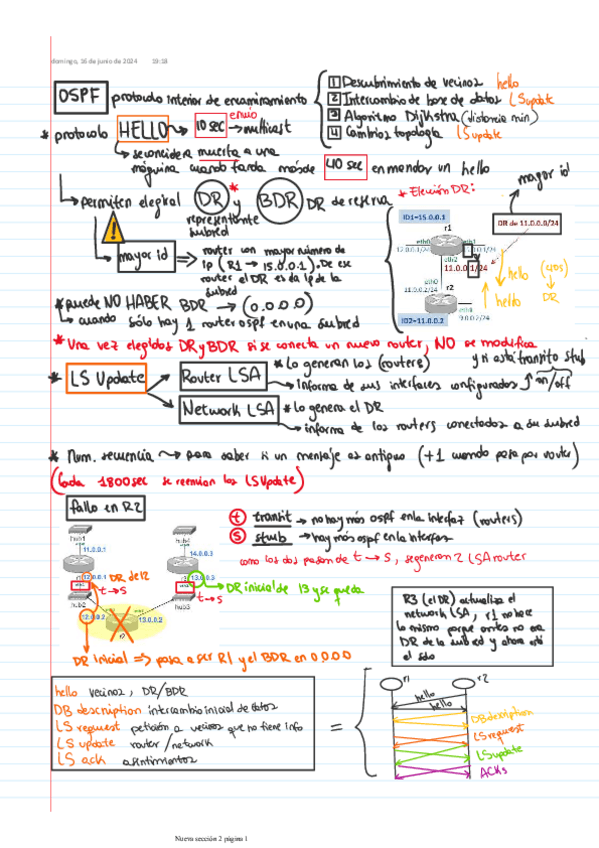 domingo, 16 de junio de 2024 19:18
OSPF protocolo interior de encaminamiento
1 Descubrimiento de vecinos hello
2 Intercambio de base de datos LSupdate
3 Algoritmo Dijkstra (distancia min)
4 Cambios topología LSupdate
* protocolo HELLO → 10 sec envío → multicast
→ se considera muerta a una
máquina cuando tarda más de 40 sec en mandar un hello
→ permiten elegir al DR * y BDR DR de reserva
representante
subred
! mayor id ⇒ router con mayor número de
ip (R1 → 15.0.0.1). De ese
router el DR es la ip de la
subred
* Elección DR:
mayor id
ID1=15.0.0.1
DR de 11.0.0.0/24
r1
eth0
eth1
12.0.0.1/24
eth2
11.0.0.1/24
eth0
r2
ID2=11.0.0.2
hello (40s)
→ DR
hello
* puede NO HABER BDR → (0.0.0.0)
→ cuando sólo hay 1 router ospf en una subred
* Una vez elegidos DR y BDR si se conecta un nuevo router, NO se modifica
* LS Update
Router LSA * Lo generan los (routers) y si está transito stub
→ Informa de sus interfaces configurados ↑ on/off
Network LSA * Lo genera el DR
→ informa de los routers conectados a su subred
* Num. secuencia → para saber si un mensaje es antiguo (+1 cuando pasa por router)
(Cada 1800sec se reenvian los LSUpdate)
fallo en R2
hub1
11.0.0.1
hub4
14.0.0.3
12.0.0.1
DR de 12
13.0.0.3
t → s
t → s
hub2
hub3
12.0.0.2
13.0.0.2
r2
DR inicial de 13 y se queda
DR inicial ⇒ pasa a ser R1 y el BDR en 0.0.0.0
t transit → no hay más ospf en la interfaz (routers)
s stub → hay más ospf en la interfaz
como los dos pasan de t → s, se generan 2 LSA router
R3 (el DR) actualiza el
network LSA, r1 no hace
lo mismo porque antes no era
DR de la subred y ahora está
el solo
hello vecinos, DR/BDR
DB description intercambio inicial de datos
LS request petición a vecinos que no tiene info
LS update router/network
LS ack asentimientos
=
r1
r2
hello
hello
DB description
LS request
LS update
ACKs
Nueva sección 2 página 1